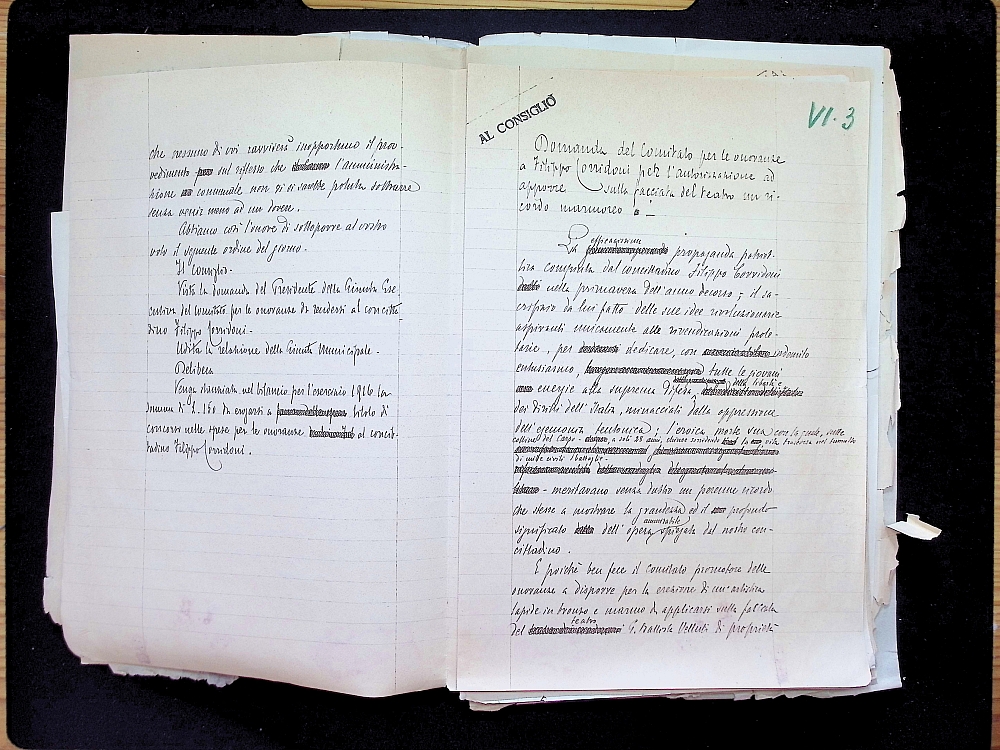 che nessuno di voi ravviserà inopportuno il prov-
vedimento sul riflesso che l'amministra-
zione comunale non vi si sarebbe potuta sottrarre
senza venir meno ad un dovere.
Abbiamo così l'onore di sottoporre al vostro
voto il seguente ordine del giorno.
Il Consiglio.
Vista la domanda del Presidente della Giunta Ese-
cutiva del comitato per le onoranze da rendersi al concitta-
dino Filippo Corridoni.
Udita la relazione della Giunta Municipale.
Delibera
Venga stanziata nel bilancio per l'esercizio 1916 la
somma di L. 150 da erogarsi a titolo di
concorso nelle spese per le onoranze al concit-
tadino Filippo Corridoni.
AL CONSIGLIO
VI. 3
Domanda del Comitato per le onoranze
a Filippo Corridoni per l'autorizzazione ad
apporre sulla facciata del teatro un ri-
cordo marmoreo
La propaganda patriot-
tica compiuta dal concittadino Filippo Corridoni
nella primavera dell'anno decorso; il sa-
crificio da lui fatto delle sue idee rivoluzionarie
aspiranti unicamente alle rivendicazioni prole-
tarie, per dedicare, con indomito
entusiasmo, tutte le giovani
energie alla suprema difesa della libertà e
dei diritti dell'Italia, minacciati dalla oppressione
dell'egemonia teutonica; l'eroica morte sua con la quale, sulle
colline del Carso a soli 28 anni, chiuse vita trascorsa nel tumulto
di mille civili battaglie.
- meritavano senza dubbio un perenne ricordo
che stesse a mostrare la grandezza ed il profondo
significato dell'opera ammirabile spiegata dal nostro con-
cittadino.
E poichè ben fece il comitato promotore delle
onoranze a disporre per la erezione di un'artistica
lapide in bronzo e marmo da applicarsi sulla facciata
del teatro G. Battista Velluti di proprietà